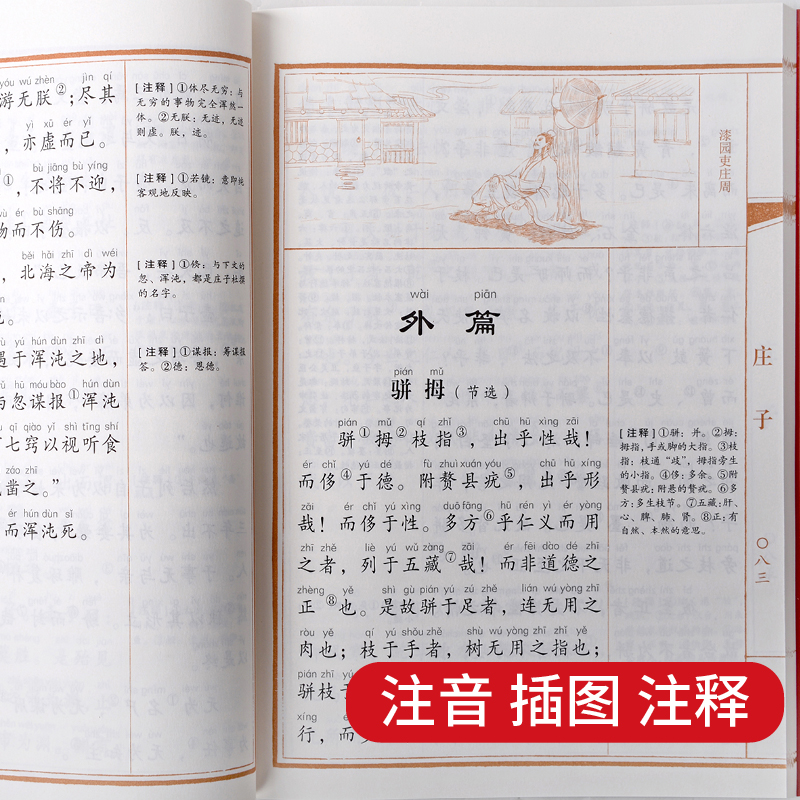 yóu wú zhèn jìn qí
游无朕②；尽其
yì xū ér yǐ
，亦虚而已。
bù jiāng bù yíng
①，不将不迎，
ér bù shāng
物而不伤。
běi hǎi zhī dì wéi
，北海之帝为
。
yù yú hún dùn zhī dì
遇于浑沌之地，
hū móu bào hún dùn
与忽谋报①浑沌
qī qiào yǐ shì tīng shí
七窍以视听食
záo zhī
凿之。”
ér hún dùn sǐ
而浑沌死。
[注释]①体尽无穷：与
无穷的事物完全浑然一
体。②无朕：无迹，无迹
则虚。朕，迹。
[注释]①若镜：意即纯
客观地反映。
[注释]①倏：与下文的
忽、浑沌，都是庄子杜撰
的名字。
[注释]①谋报：筹谋报
答。②德：恩德。
漆园吏庄周
wài piān
外篇
pián mǔ
骈拇（节选）
pián mǔ zhī zhǐ chū hū xìng zāi
骈①拇②枝指③，出乎性哉！
ér chǐ yú dé fù zhuì xuán yóu chū hū xíng
而侈④于德。附赘县疣⑤，出乎形
zāi ér chǐ yú xìng duō fāng hū rén yì ér yòng
哉！而侈于性。多方⑥乎仁义而用
zhī zhě liè yú wǔ zàng zāi ér fēi dào dé zhī
之者，列于五藏⑦哉！而非道德之
zhèng yě shì gù pián yú zú zhě lián wú yòng zhī
正⑧也。是故骈于足者，连无用之
ròu yě zhī yú shǒu zhě shù wú yòng zhī zhǐ yě
肉也；枝于手者，树无用之指也；
pián zhī
骈枝于
xíng
行，而
[注释]①骈：并。②拇：
拇指，手或脚的大指。③枝
指：枝通“歧”，拇指旁生
的小指。④侈：多余。⑤附
赘县疣：附悬的赘疣。⑥多
方：多生枝节。⑦五藏：肝、
心、脾、肺、肾。⑧正：有
自然、本然的意思。
庄子
〇八三
注音 插图 注释